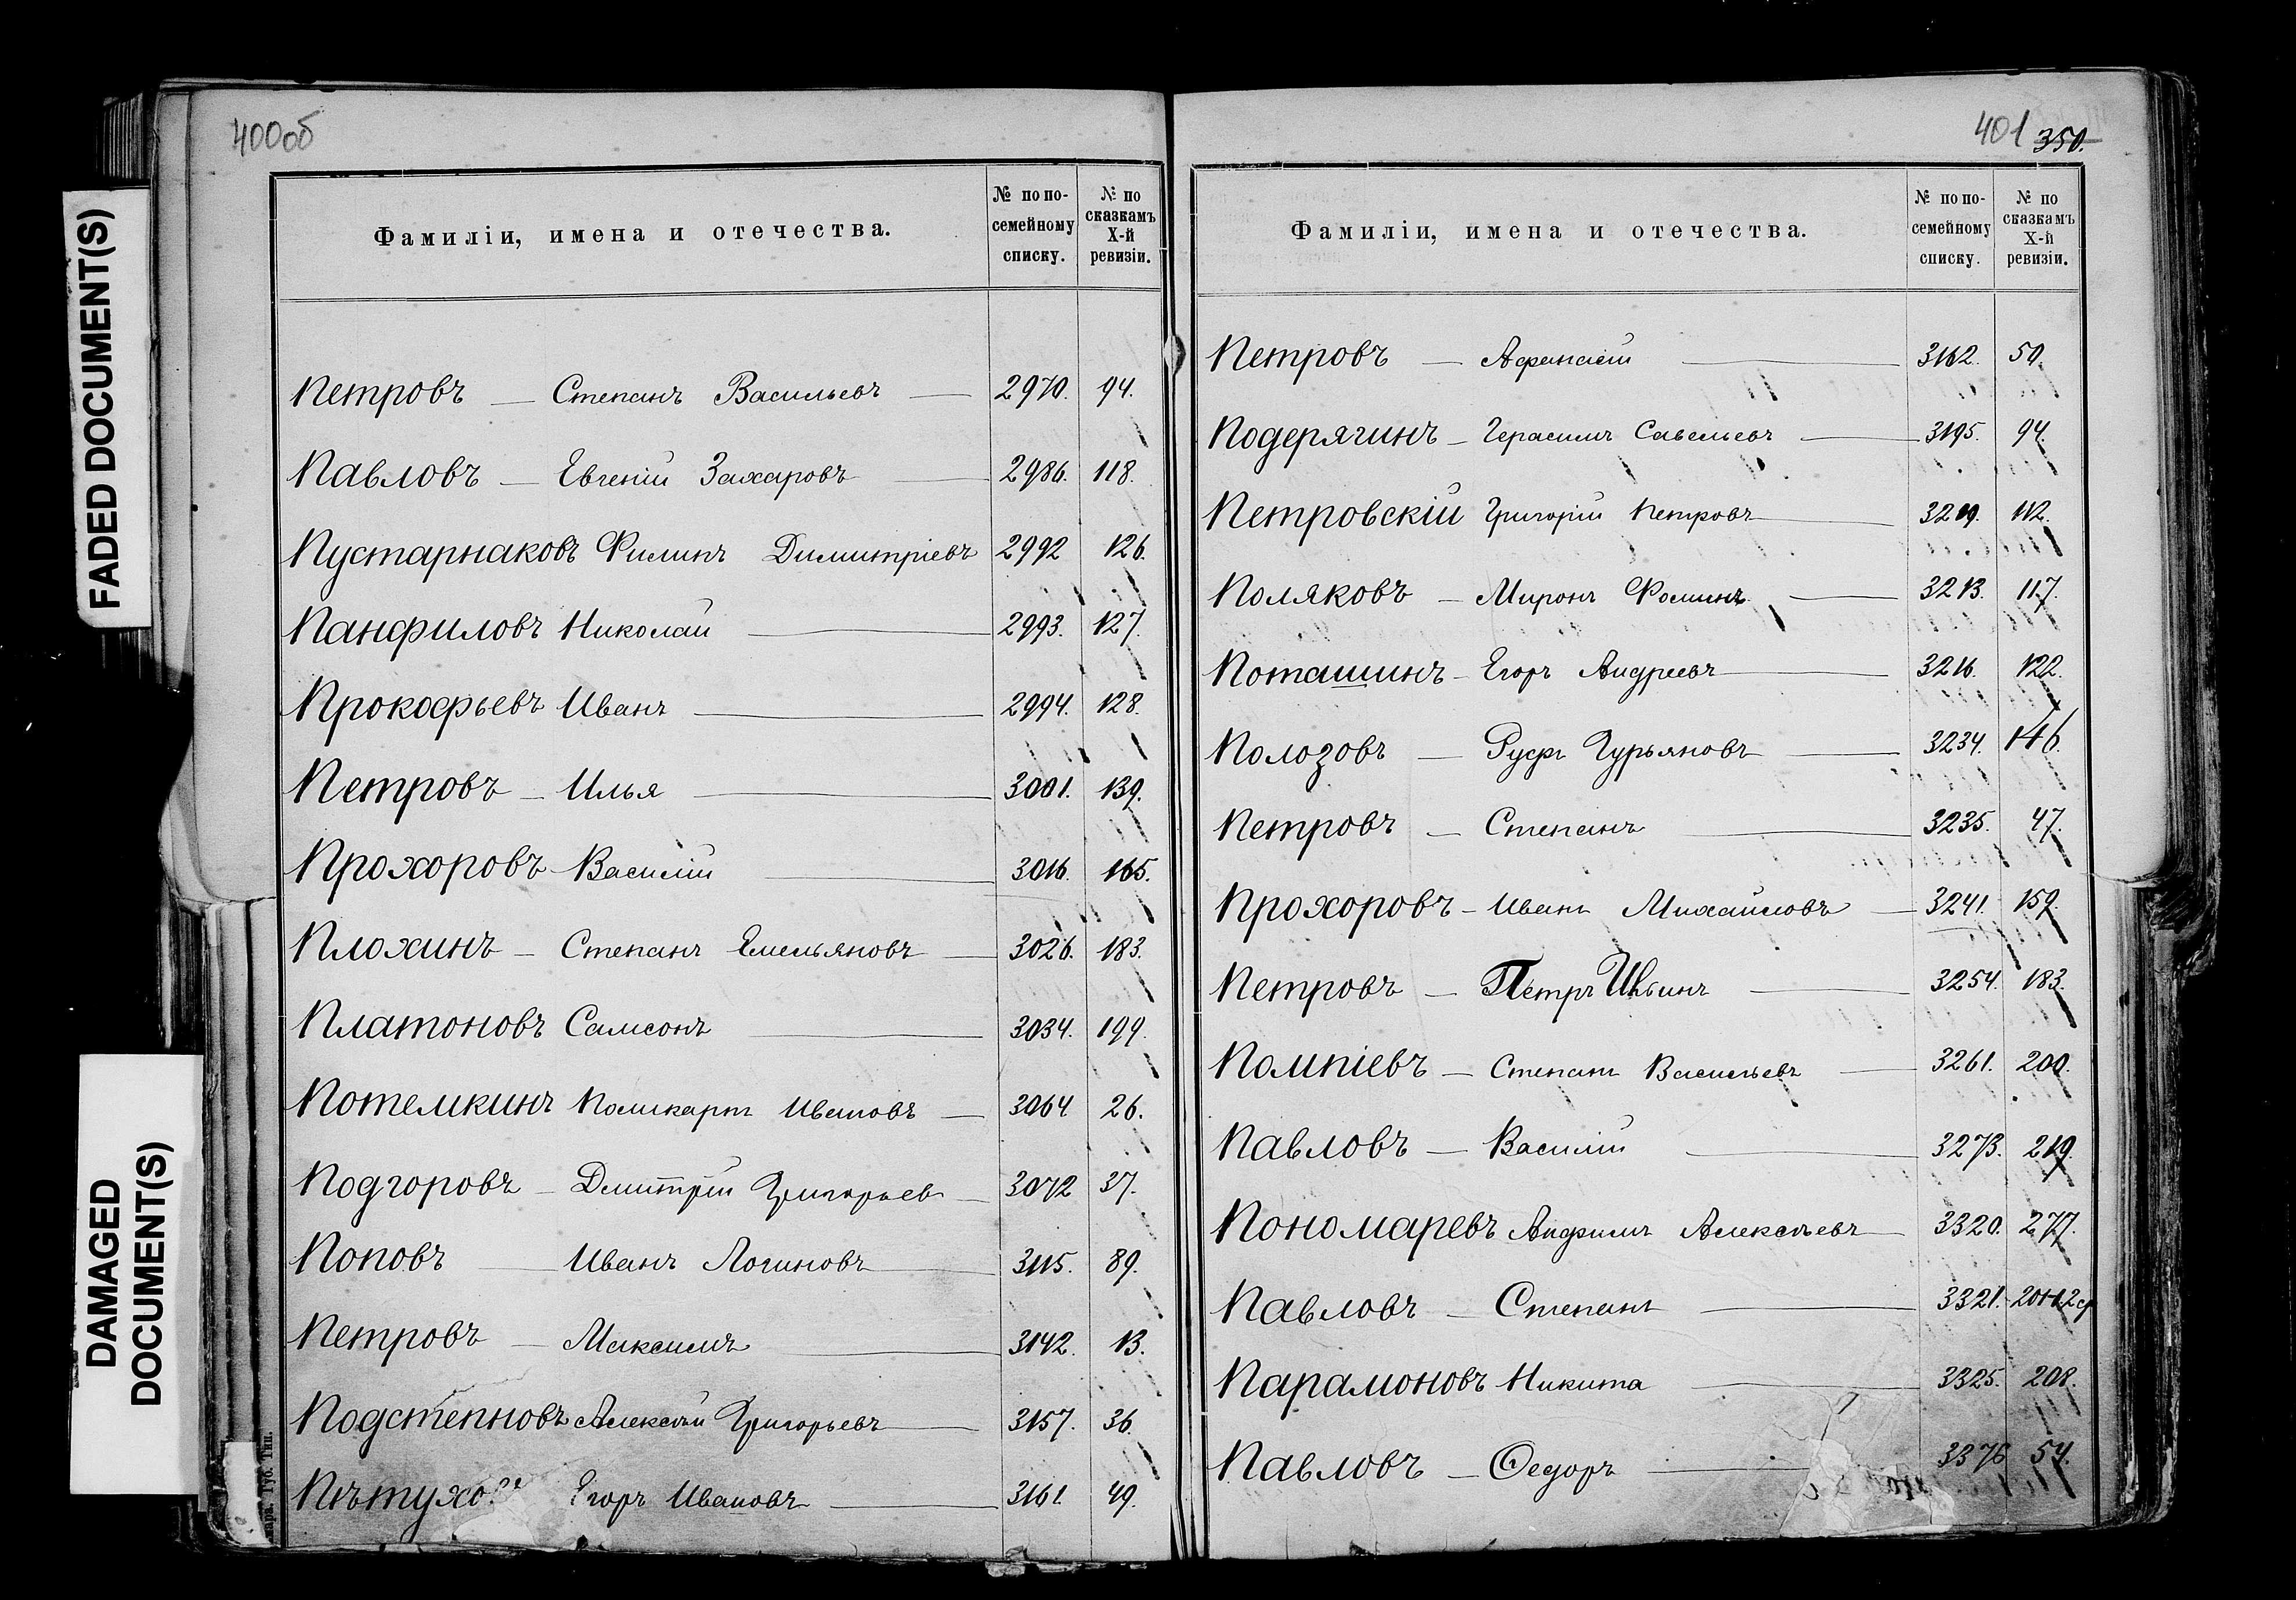 FADED DOCUMENT(S)
DAMAGED
DOCUMENT(S)
400об
Фамиліи, имена и отечества.
№ по по-
семейному
списку.
№ по
сказкамъ
X-й
ревизіи.
Петровъ — Степанъ Васильевъ — 2970. 94.
Павловъ — Евгеній Захаровъ — 2986. 118.
Пустарнаковъ Филипъ Димитріевъ 2992 126.
Панфиловъ Николай — 2993. 127.
Прокофьевъ Иванъ — 2994. 128.
Петровъ — Илья — 3001. 139.
Прохоровъ Василій — 3016. 165.
Плохинъ — Степанъ Емельяновъ — 3026. 183.
Платоновъ Самсонъ — 3034. 199.
Потемкинъ Поликарпъ Ивановъ — 3064 26.
Подгоровъ — Дмитрій Григорьев — 3072 37.
Поповъ — Иванъ Логиновъ — 3115. 89.
Петровъ — Максимъ — 3142. 13.
Подстепновъ Алексѣй Григорьевъ — 3157. 36.
Пѣтуховъ Егоръ Ивановъ — 3161. 49.
Губ. Тип.
401 350.
Фамиліи, имена и отечества.
№ по по-
семейному
списку.
№ по
сказкамъ
X-й
ревизіи.
Петровъ — Афанасій — 3162. 50.
Подерягинъ — Герасимъ Савельевъ — 3195. 94.
Петровскій Григорій Петровъ — 3209. 112.
Поляковъ — Миронъ Фоминъ — 3213. 117.
Поташинъ — Егоръ Андреевъ — 3216. 122.
Полозовъ — Руфъ Гурьяновъ — 3234. 146.
Петровъ — Степанъ — 3235. 47.
Прохоровъ — Иванъ Михайловъ — 3241. 159.
Петровъ — Петръ Ильинъ — 3254. 183.
Помпіевъ — Степанъ Васильевъ — 3261. 200.
Павловъ — Василій — 3273. 219.
Пономаревъ Анфимъ Алексѣевъ — 3320. 277.
Павловъ — Степанъ — 3321.
Парамоновъ Никита — 3325. 208.
Павловъ — Ѳедоръ — 3376 54.